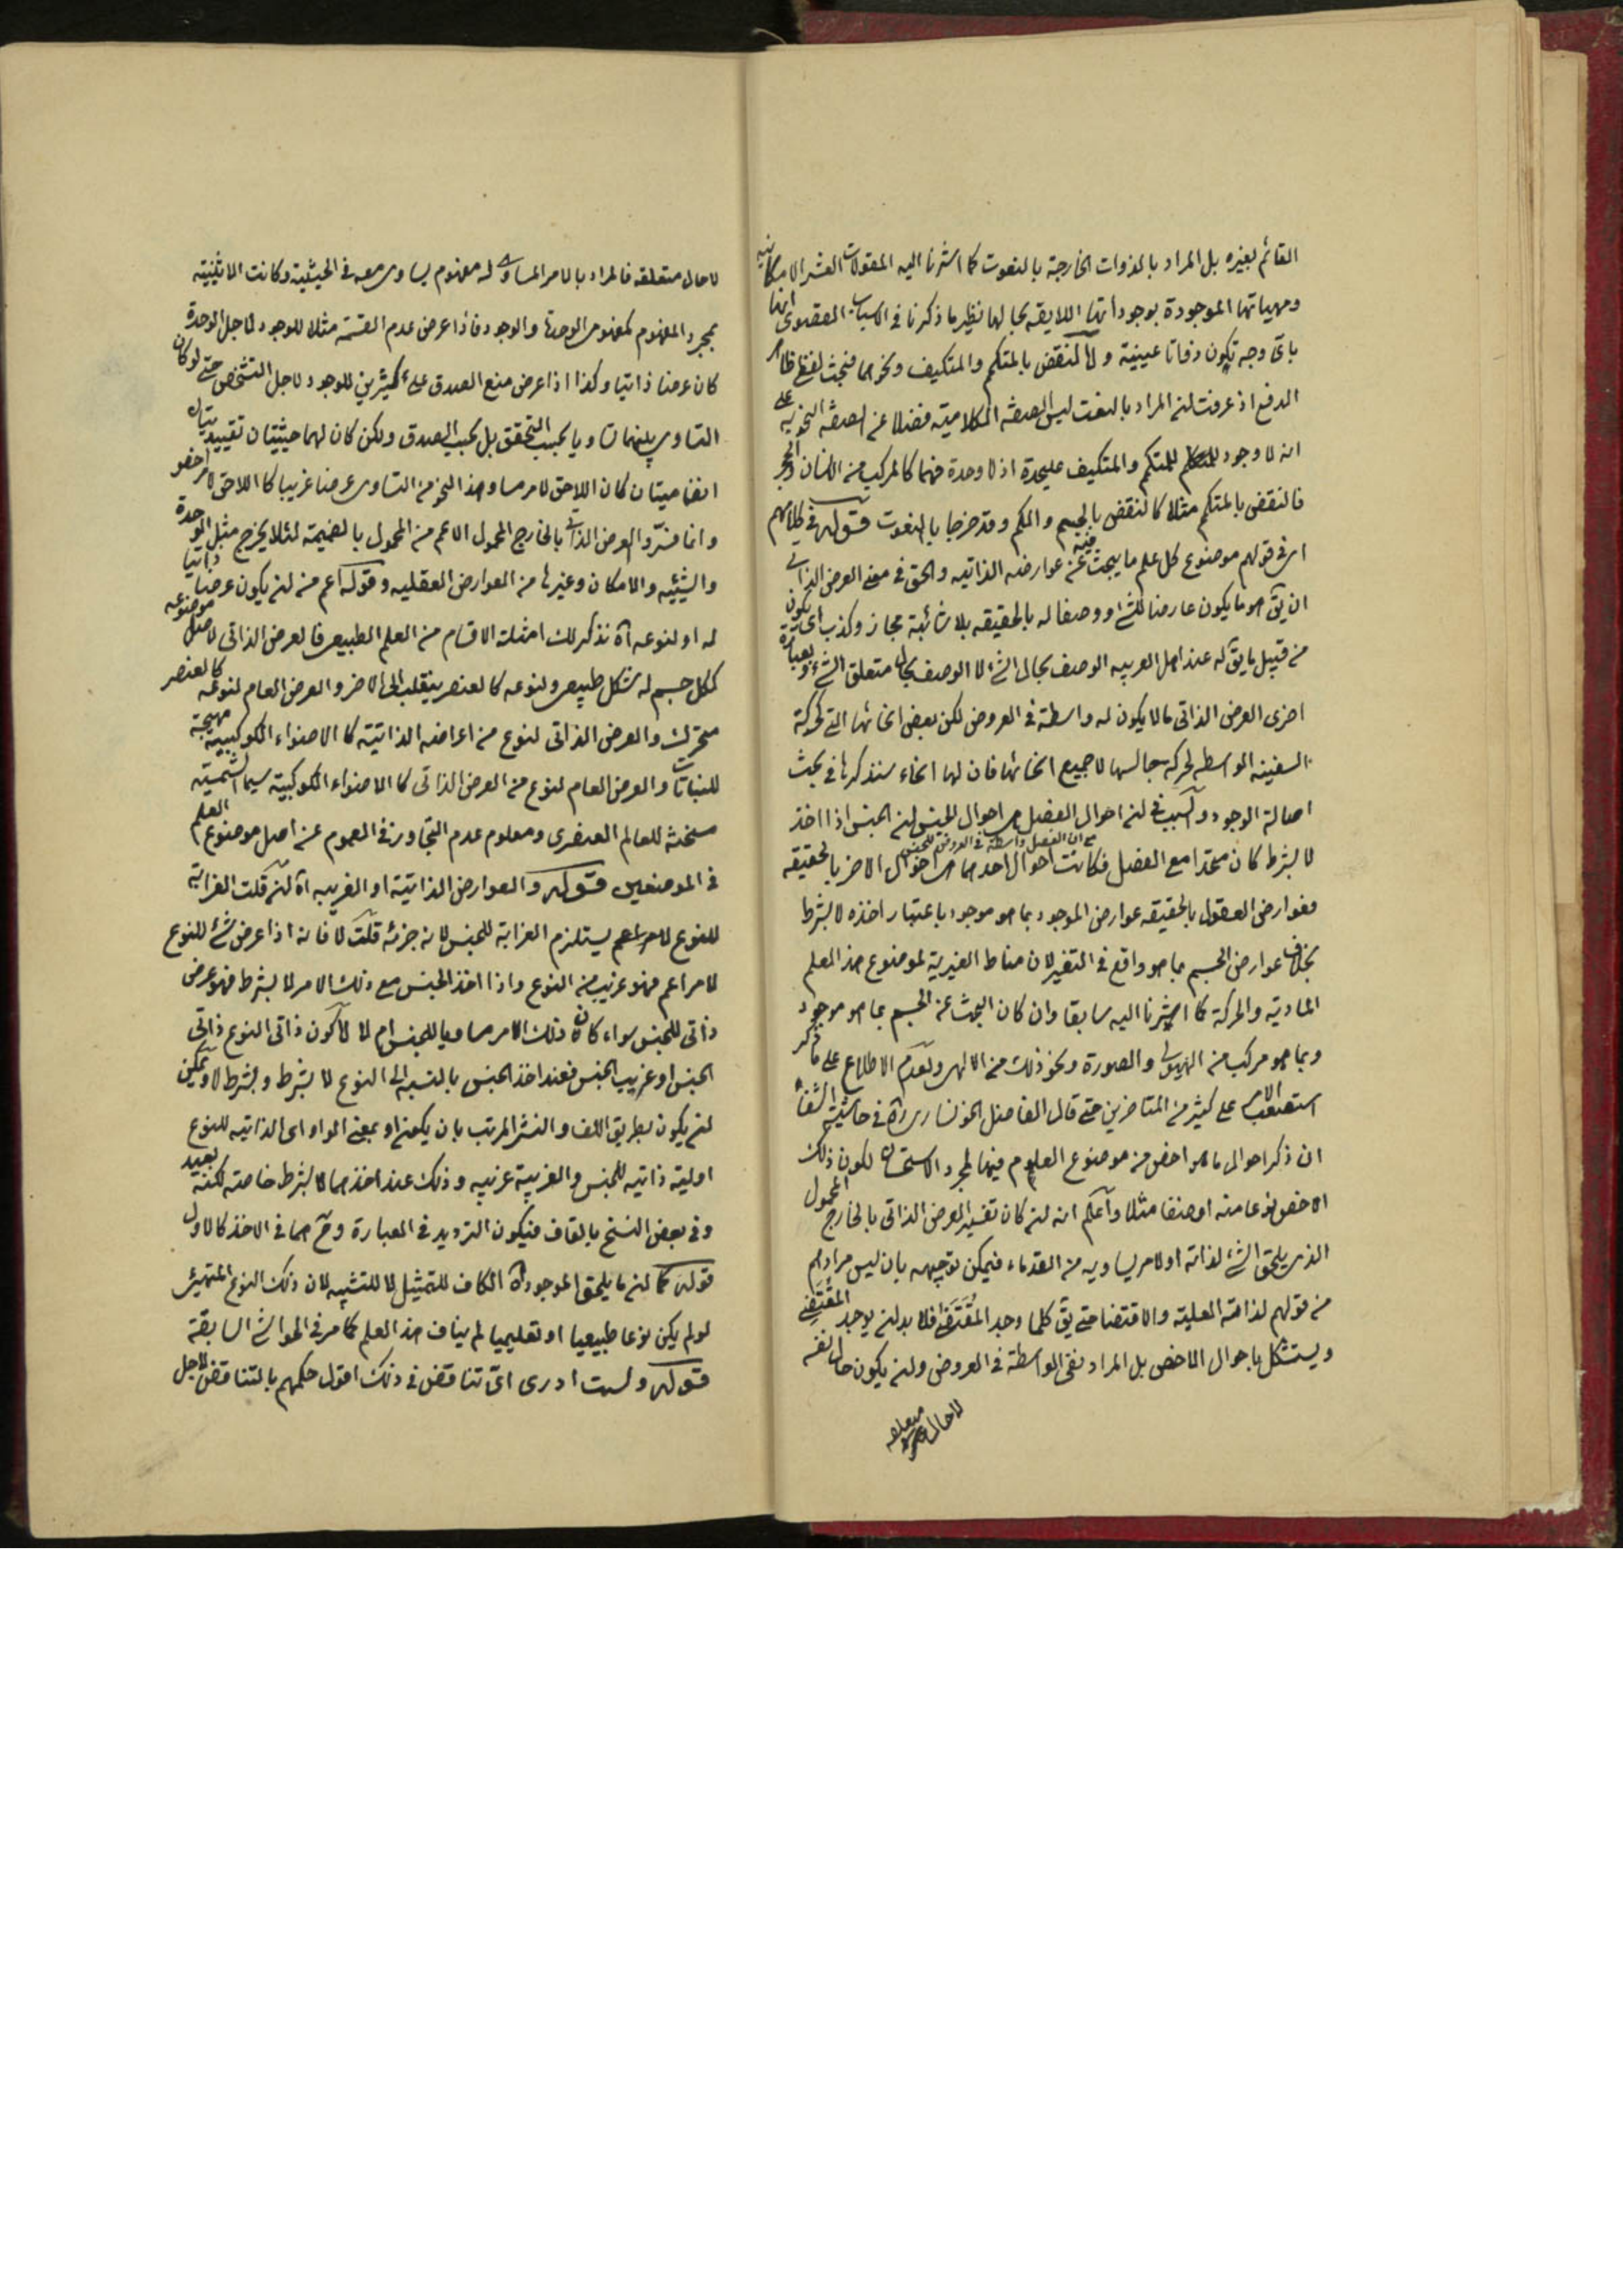 القائم بغيره بل المراد بالذوات الخارجة بالنعوت كما اشرنا اليه المقولات العشر الامكانيه
ومهياتها الموجودة بوجوداتها اللايقه بحالها نظير ما ذكرنا في السياب القصوى ايها
باى وجه تكون ذواتا عيينية ولا لنقض بالمتكم والمتكيف ونحوهما فبحث لفظ ظاهر
الدفع اذ عرفت ان المراد بالنعت ليس الصفة الكلامية فضلا عن الصفة النحويه على
انه لا وجود للمتكم والمتكيف عليحدة اذ لا وحدة فيهما كالمركب من الانسان والحجر
فالنقض بالمتكم مثلا كالنقض بالجسم والكم وقد خرجا بالنعوت قوله في كلامهم
اى في قولهم موضوع كل علم ما يبحث فيه عن عوارضه الذاتيه والحق في معنى العرض الذاتى
ان يق هو ما يكون عارضا للشئ او وصفا له بالحقيقه بلا شائبة مجاز وكذب اى يكون
من قبيل ما يق له عند اهل العربيه الوصف بحال الشئ لا الوصف بحال متعلق الشئ وبعبارة
اخرى العرض الذاتى ما لا يكون له واسطة في العروض لكن بعض انحائها التى كحركة
السفينه الواسطه لحركة جالسها لا جميع انحائها فان لها انحاء سنذكرها في بحث
اصالة الوجود والسبب في ان احوال الفصل هى احوال الجنس ان الجنس اذا اخذ
مع ان الفصل واسطة في العروض للجنس
لا بشرط كان متحدا مع الفصل فكانت احوال احدهما هى احوال الاخر بالحقيقه
فعوارض العقول بالحقيقه عوارض الموجود بما هو موجود باعتبار اخذه لا بشرط
بخلاف عوارض الجسم بما هو واقع في التغير لان مناط الغيرية لموضوع هذا العلم
المادية والحركة كما اشرنا اليه سابقا وان كان البحث عن الجسم بما هو موجود
وبما هو مركب من الهيولى والصورة ونحو ذلك من الالهى ولعدم الاطلاع على ما ذكر
استصعب الامر على كثير من المتاخرين حتى قال الفاضل الخونسارى ره في حاشية الشفاء
ان ذكر احوال ما هو اخص من موضوع العلوم فيها لمجرد الاستحسان لكون ذلك
الاخص نوعا منه او صنفا مثلا واعلم انه ان كان تفسير العرض الذاتى بالخارج المحمول
الذى يلحق الشئ لذاته او لامر يساويه من القدماء فيمكن توجيهه بان ليس مرادهم
من قولهم لذاته العلية والاقتضا حتى يق كلما وجد المقتضى فلا بد ان يوجد المقتضى
ويستشكل باحوال الاخص بل المراد نفى الواسطة في العروض وان يكون حال نفسه
لا حال متعلقه
لا حال متعلقه فالمراد بالامر المساوى له مفهوم يساوى معه في الحيثية وكانت الاثنينية
بمجرد المفهوم كمفهومى الوحدة والوجود فاذا عرض عدم القسمة مثلا للوجود لاجل الوحدة
كان عرضا ذاتيا وكذا اذا عرض منع الصدق على كثيرين للوجود لاجل التشخص حتى لو كان
التساوى بينهما تساويا بحسب التحقق بل بحسب الصدق ولكن كان لهما حيثيتان تقييديتان
انضماميتان كان اللاحق لامر مساو هذا النحو من التساوى عرضا غريبا كاللاحق لامر اخص
وانما فسروا العرض الذاتى بالخارج المحمول الاعم من المحمول بالضميمة لئلا يخرج مثل الوحدة
والشيئيه والامكان وغيرها من العوارض العقليه وقوله اعم من ان يكون عرضا ذاتيا
له او لنوعه اه نذكر لك امثلة الاقسام من العلم الطبيعى فالعرض الذاتى لاصل موضوعه
ككل جسم له شكل طبيعى ولنوعه كالعنصر ينقلب الى الاخر والعرض العام لنوعه كالعنصر
متحرك والعرض الذاتى لنوع من اعراضه الذاتية كالاضواء الكوكبية مهيجة
للنباتات والعرض العام لنوع من العرض الذاتى كالاضواء الكوكبية سيما الشمسية
مسخنة للعالم العنصرى ومعلوم عدم التجاوز في العموم عن اصل موضوع العلم
في الموضعين قوله والعوارض الذاتية او الغريبه اه ان قلت الغرابة
للنوع لامر اعم يستلزم الغرابة للجنس لانه جزئه قلت لا فانه اذا عرض شئ للنوع
لامر اعم فهو غريب من النوع واذا اخذ الجنس مع ذلك الامر لا بشرط فهو عرض
ذاتى للجنس سواء كان ذلك الامر مساويا للجنس ام لا ككون ذاتى النوع ذاتى
الجنس او غريب الجنس فعند اخذ الجنس بالنسبه الى النوع لا بشرط وبشرط لا ويمكن
ان يكون بطريق اللف والنشر المرتب بان يكون او بمعنى الواو اى الذاتيه للنوع
اوليته ذاتيه للجنس والغريبة غريبه وذلك عند اخذهما لا بشرط خاصته لكنه بعيد
وفى بعض النسخ بالقاف فيكون الترديد في العبارة وح هما في الاخذ كالاول
قوله كما ان ما يلحق الموجود اه الكاف للتمثيل لا للتشبيه لان ذلك النوع المتهيئ
لو لم يكن نوعا طبيعيا او تعليميا لم يناف هذا العلم كما مر في الحواشى السابقة
قوله ولست ادرى اى تناقض في ذلك اقول حكمهم بالتناقض لاجل